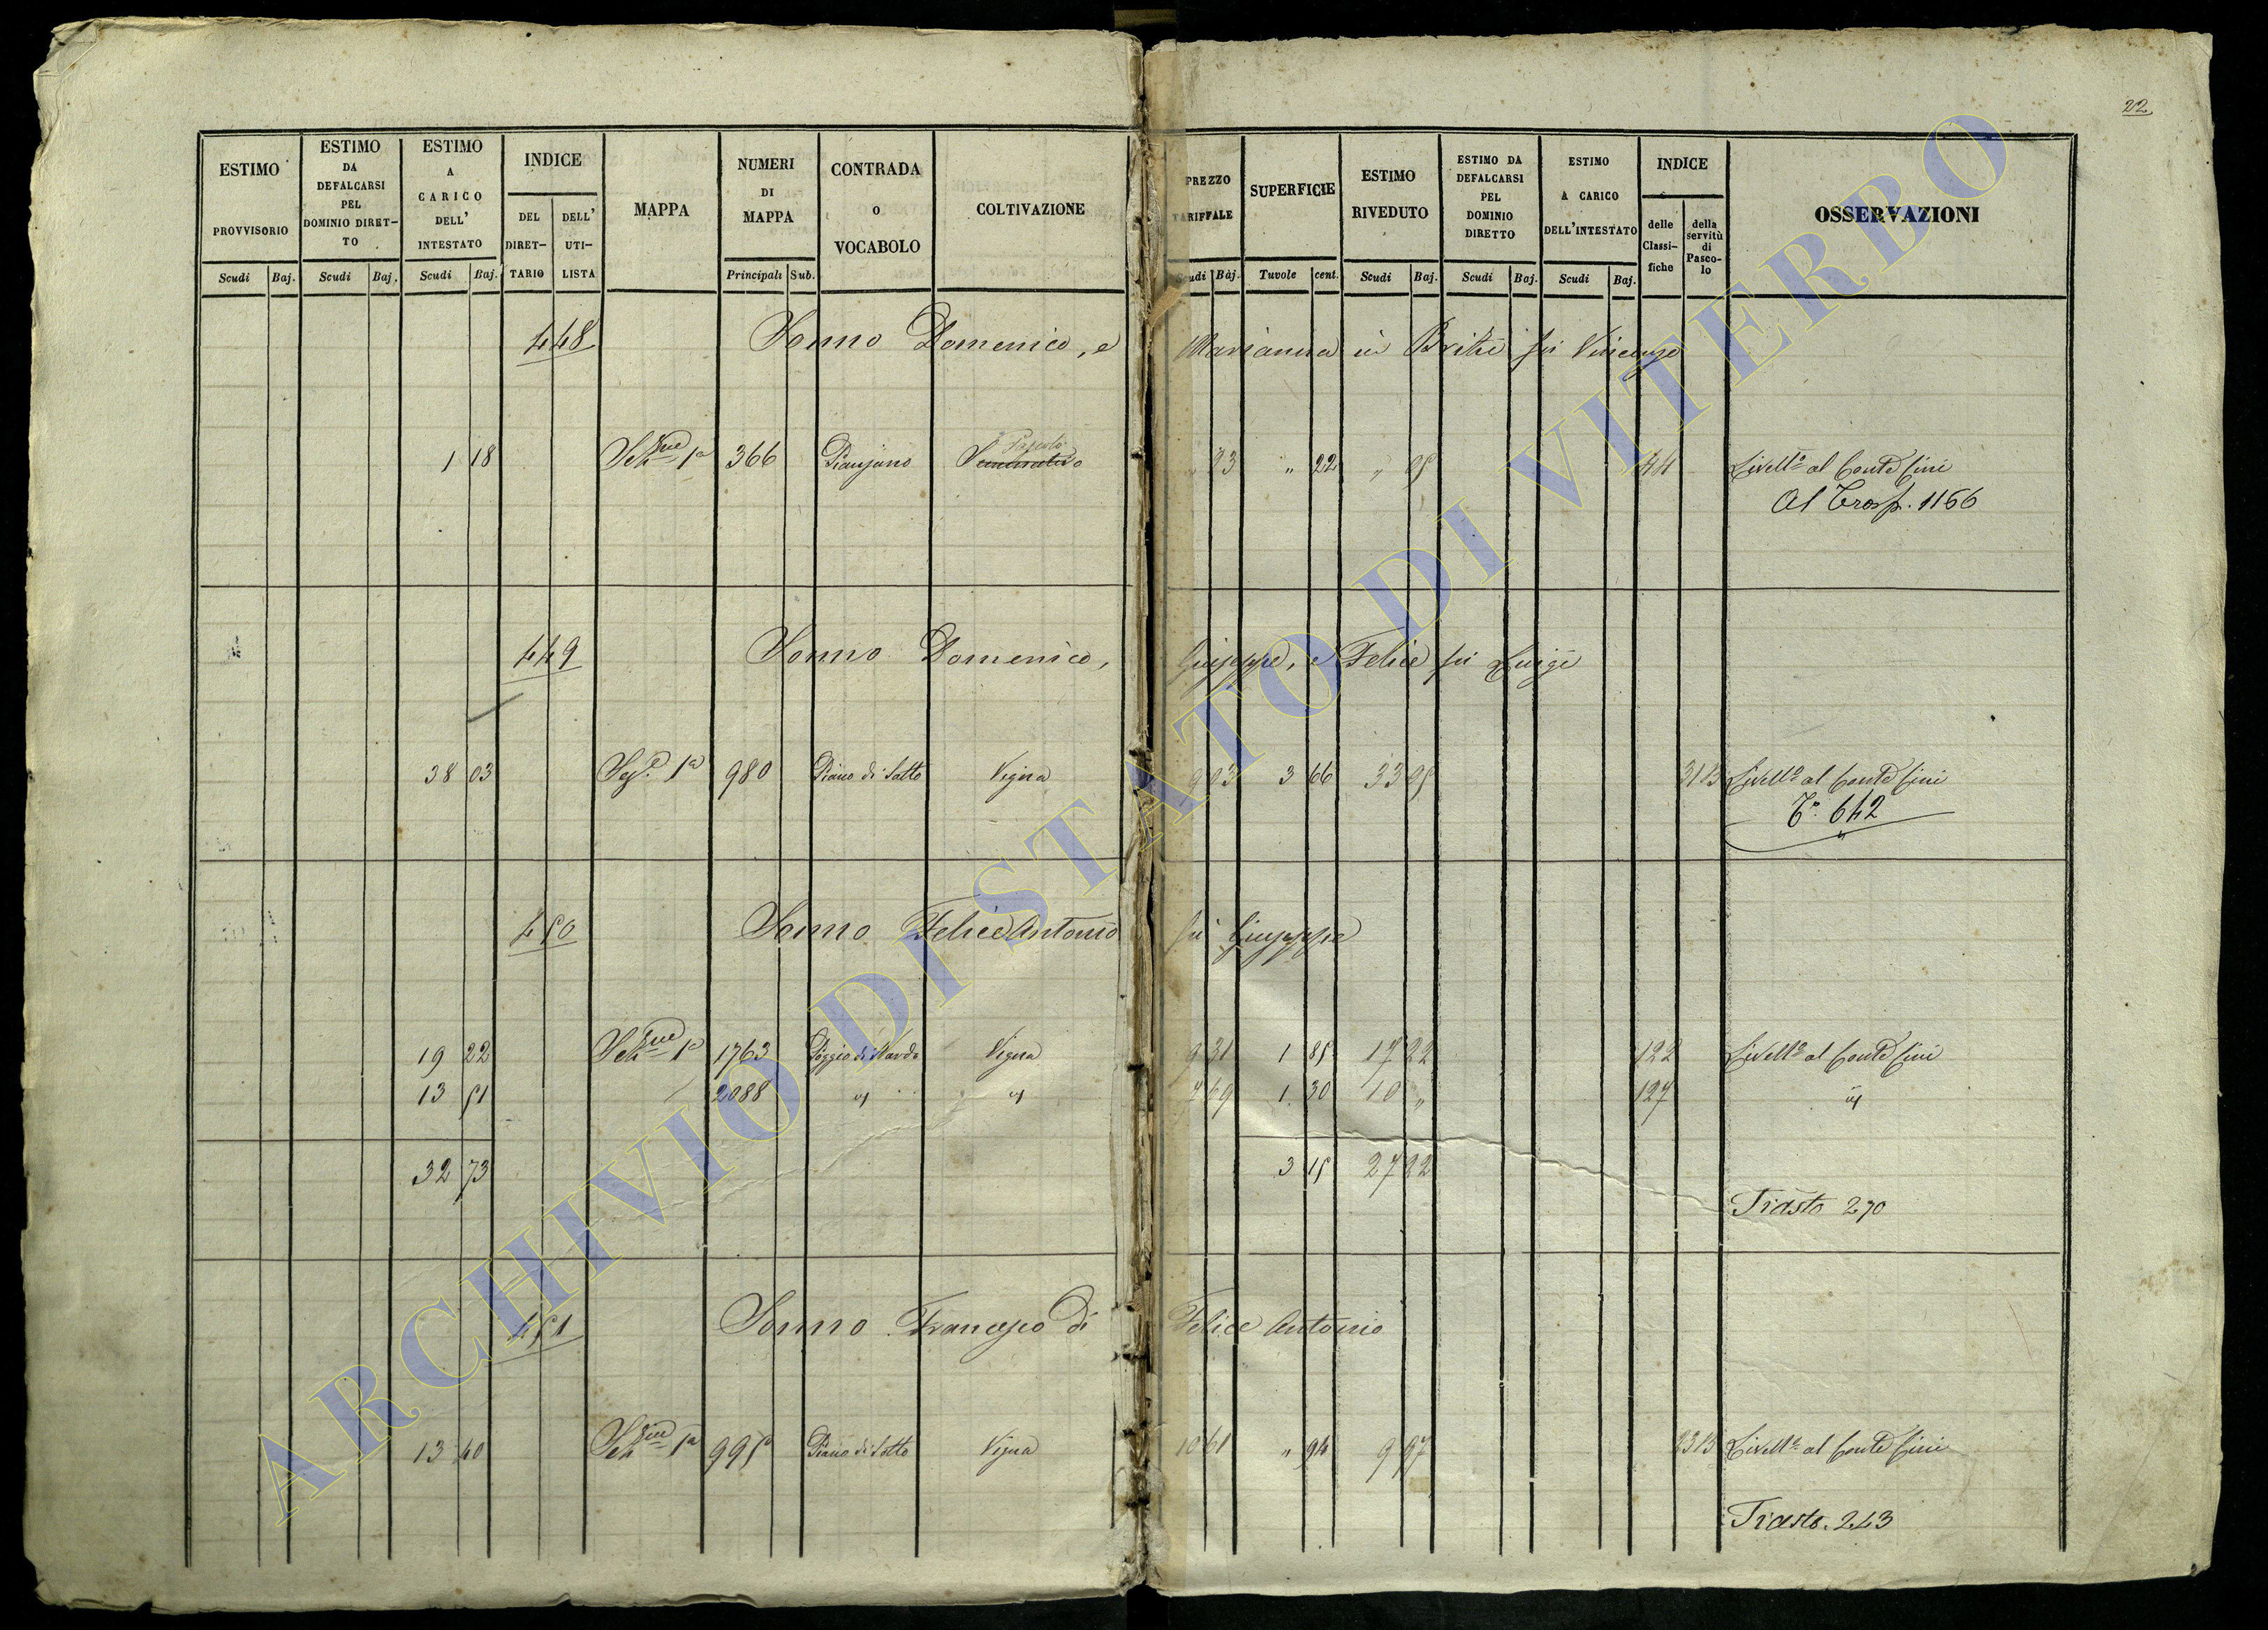 22
ESTIMO PROVVISORIO
ESTIMO DA DEFALCARSI PEL DOMINIO DIRETTO
ESTIMO A CARICO DELL' INTESTATO
INDICE
DEL DIRETTARIO
DELL' UTILISTA
MAPPA
NUMERI DI MAPPA
CONTRADA O VOCABOLO
COLTIVAZIONE
PREZZO TARIFFALE
SUPERFICIE
ESTIMO RIVEDUTO
ESTIMO DA DEFALCARSI PEL DOMINIO DIRETTO
ESTIMO A CARICO DELL'INTESTATO
INDICE
delle Classifiche
della servitù di Pascolo
OSSERVAZIONI
Scudi Baj. Scudi Baj. Scudi Baj. Principali Sub. Scudi Baj. Tavole cent. Scudi Baj. Scudi Baj. Scudi Baj.
448 Sonno Domenico, e Marianna in Brizi fu Vincenzo
Pascolo
1 18 1a 366 Pianjano Seminativo 23 " 22 " 05 44 Livellº al Conte Cini
Al Trasp. 1156
449 Sonno Domenico, Giuseppe, e Felice fu Luigi
38 03 1a 980 Piano di Sotto Vigna 9 03 3 66 33 05 Livellº al Conte Cini
Tº 642
450 Sonno Felice Antonio fu Giuseppe
19 22 1a 1763 Poggio di Nardo Vigna 9 31 1 85 17 22 122 Livellº al Conte Cini
13 51 2088 id id 7 69 1 30 10 " 127 id
32 73 3 15 27 22
Trasto 270
451 Sonno Francesco di Felice Antonio
13 40 1a 995 Piano di Sotto Vigna 10 61 " 94 9 97 Livellº al Conte Cini
Trasto. 243
ARCHIVIO DI STATO DI VITERBO